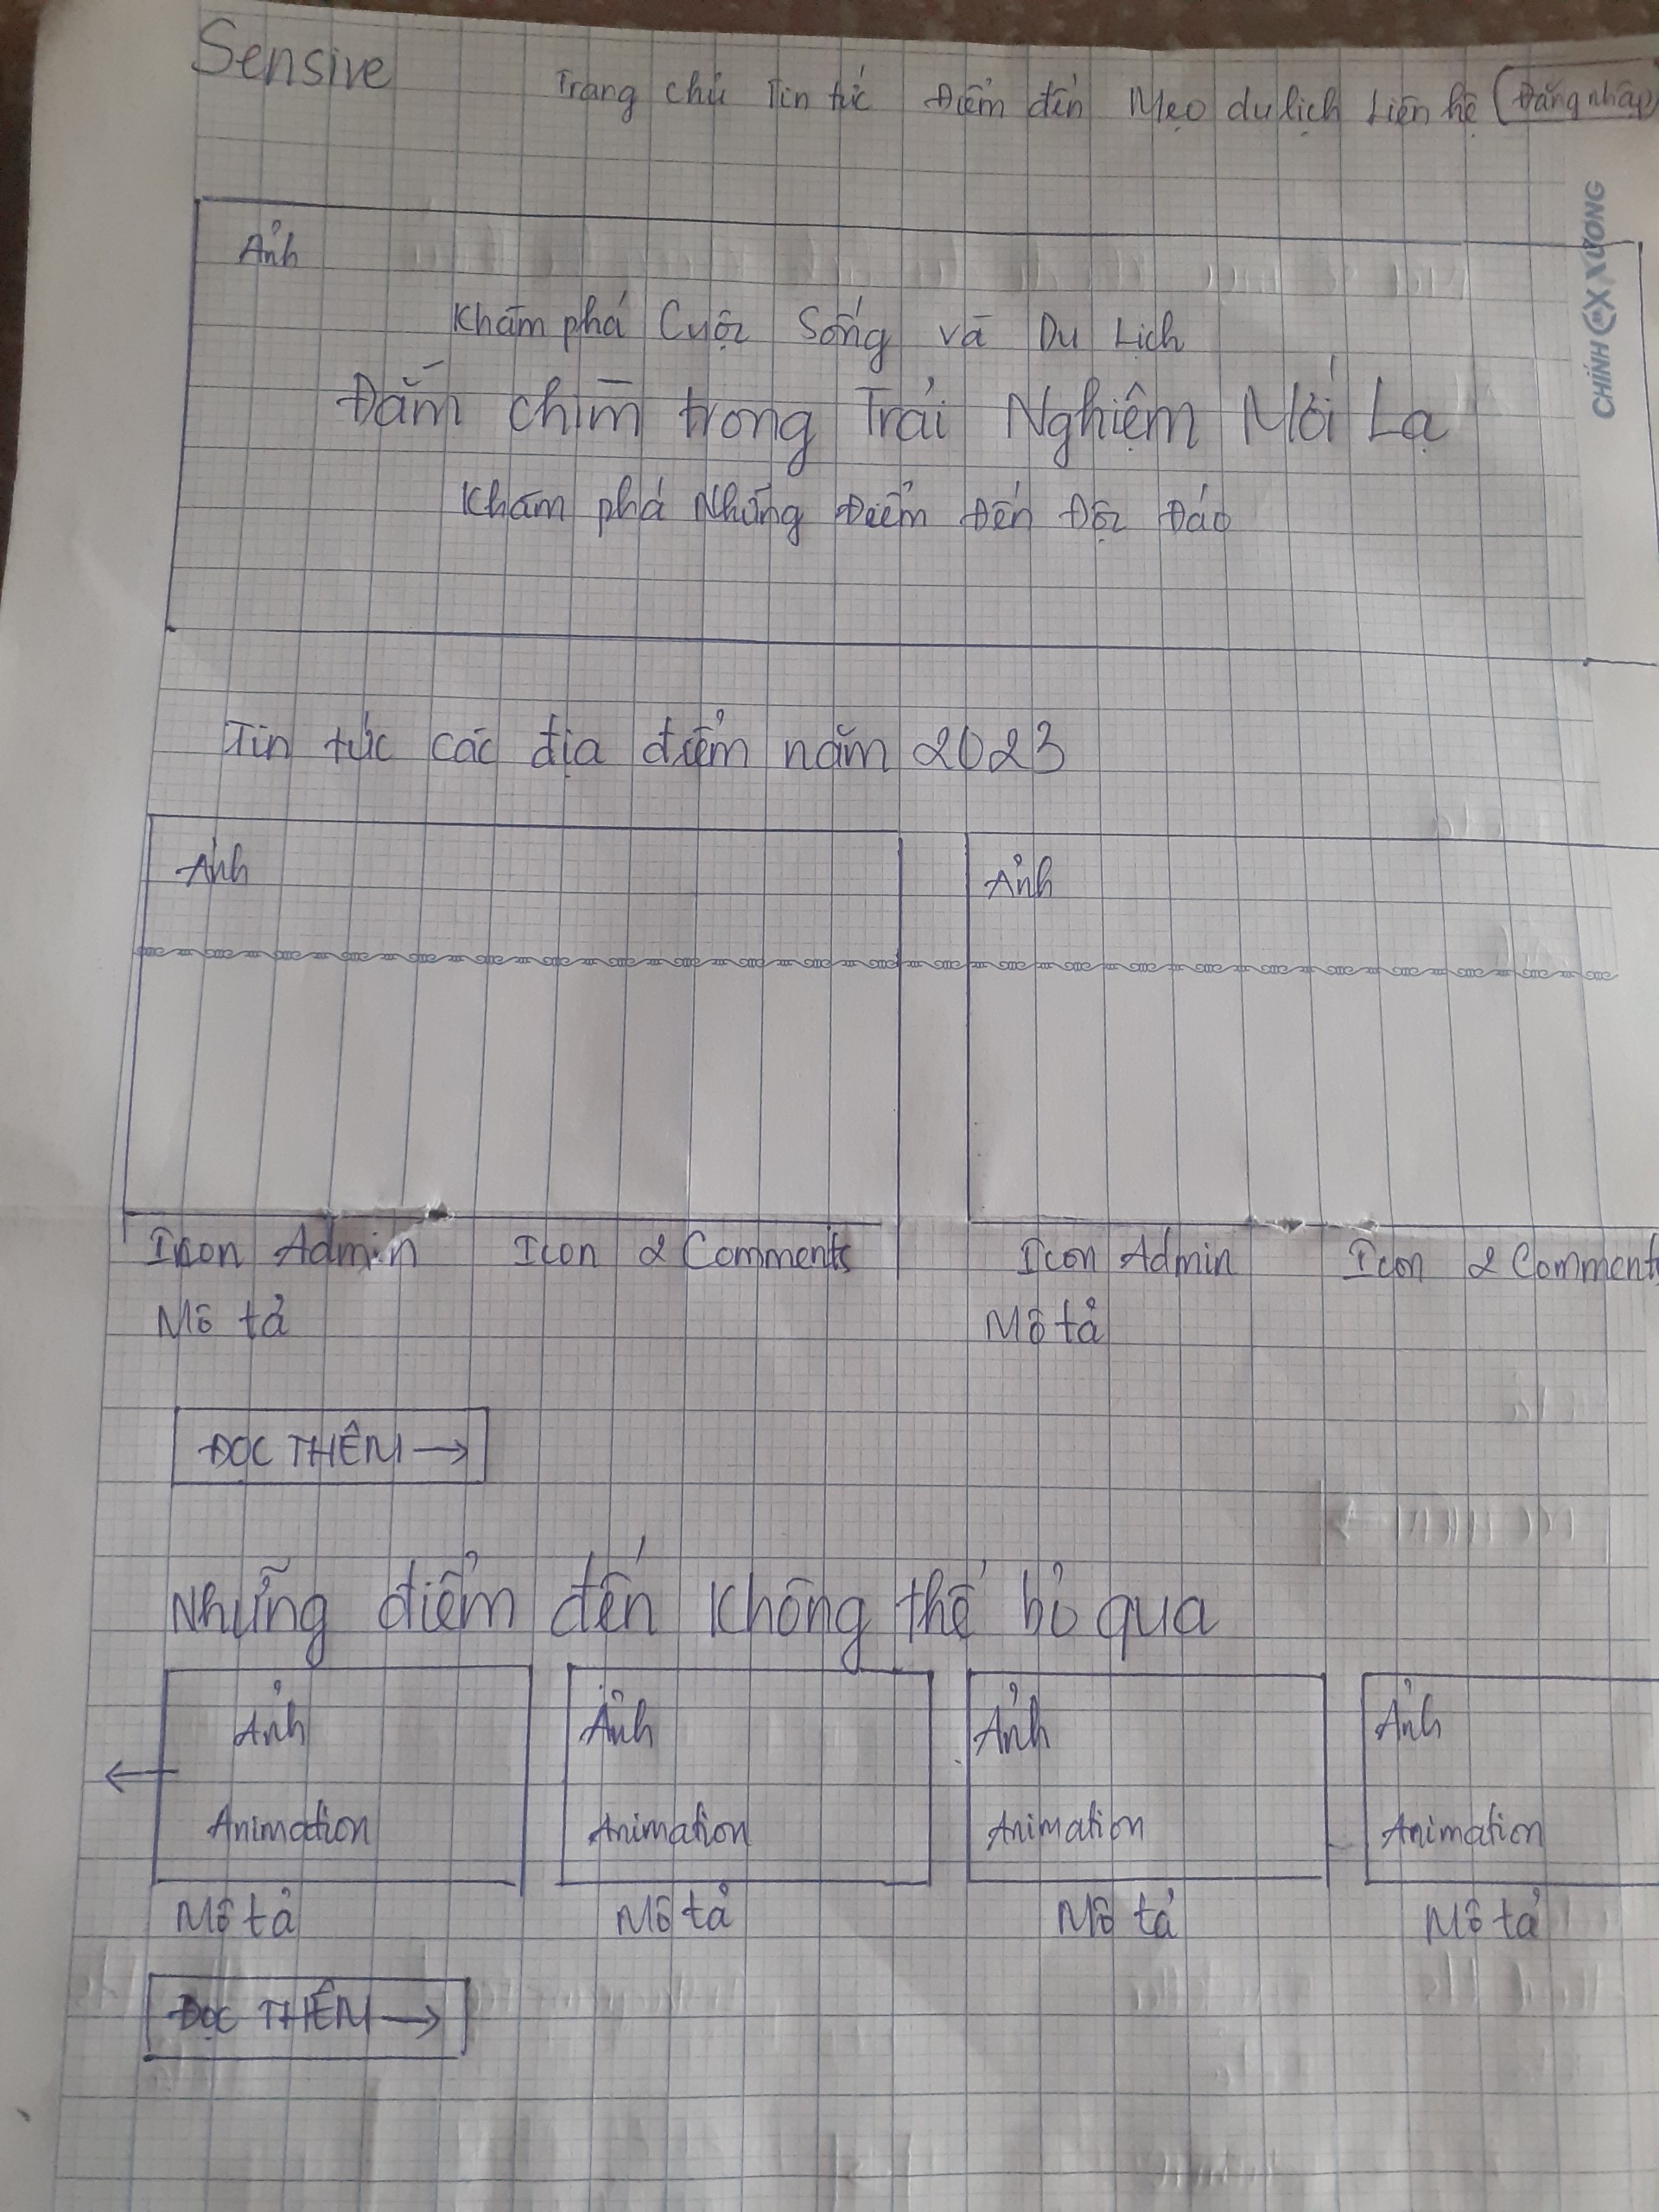 Sensive
Trang chủ Tin tức Điểm đến Mẹo du lịch Liên hệ Đăng nhập
CHÍNH XƯƠNG
Ảnh
Khám phá Cuộc Sống và Du Lịch
Đắm chìm trong Trải Nghiệm Mới Lạ
Khám phá Những Điểm Đến Độc Đáo
Tin tức các địa điểm năm 2023
Ảnh Ảnh
Icon Admin Icon 2 Comments Icon Admin Icon 2 Comment
Mô tả Mô tả
ĐỌC THÊM →
Những điểm đến không thể bỏ qua
Ảnh Ảnh Ảnh Ảnh
←
Animation Animation Animation Animation
Mô tả Mô tả Mô tả Mô tả
ĐỌC THÊM →